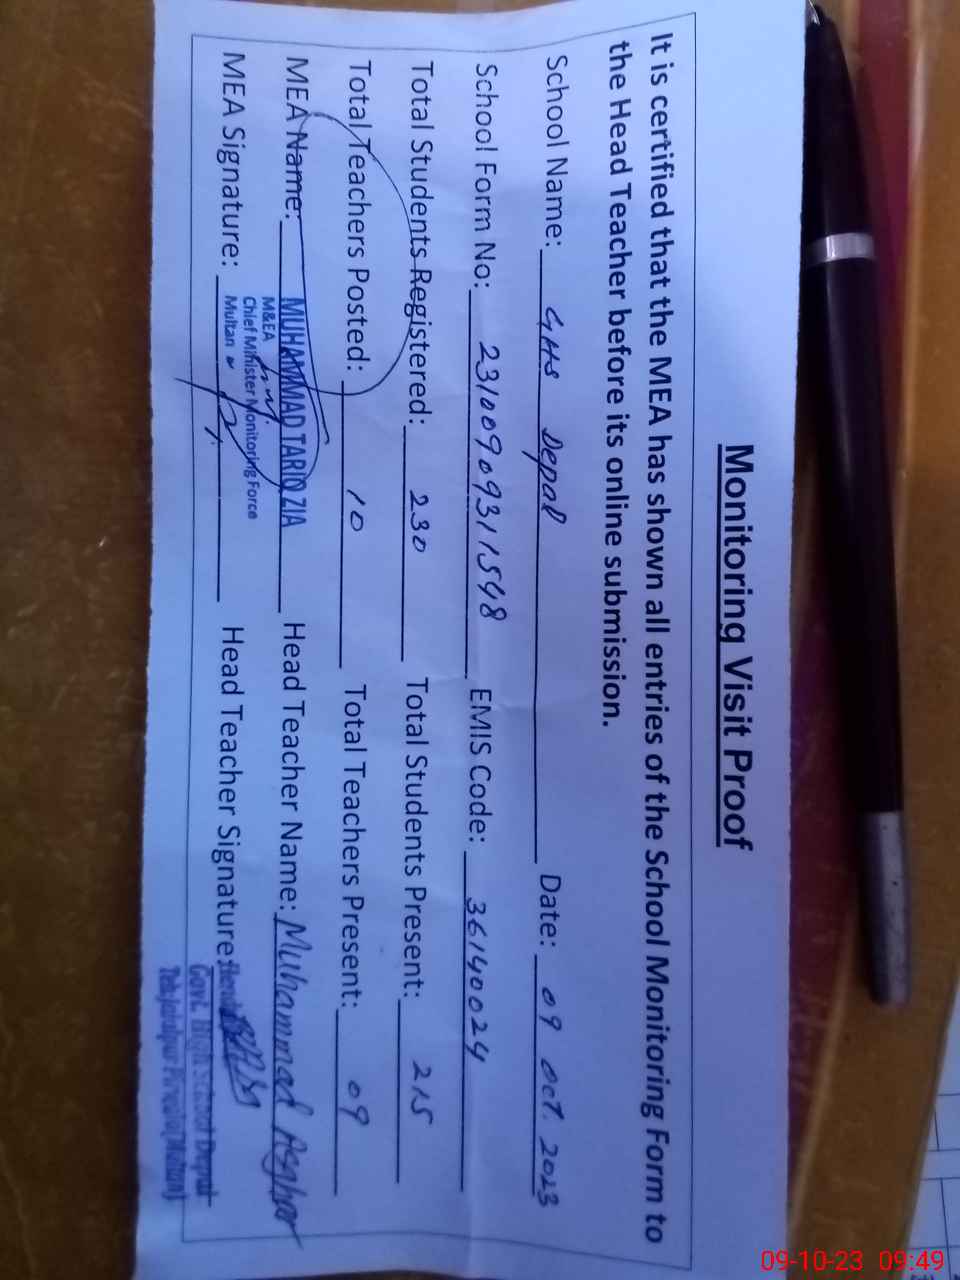 Monitoring Visit Proof
It is certified that the MEA has shown all entries of the School Monitoring Form to
the Head Teacher before its online submission.
School Name: GHS Depal Date: 09 Oct. 2023
School Form No: 23100909311548 EMIS Code: 36140024
Total Students Registered: 230 Total Students Present: 215
Total Teachers Posted: 10 Total Teachers Present: 09
MEA Name: MUHAMMAD TARIQ ZIA Head Teacher Name: Muhammad Asghar
M&EA
Chief Minister Monitoring Force
Multan
MEA Signature: Head Teacher Signature:
Govt. High School Depal
09-10-23 09:49